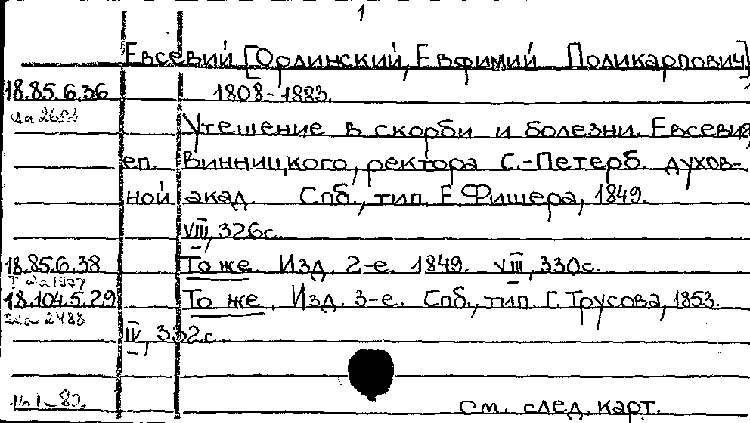 1
Евсевий [Орлинский, Евфимий Поликарпович]
18.85.6.36 1808-1883.
Утешение в скорби и болезни. Евсевия,
еп. Винницкого, ректора С.-Петерб. духов-
ной акад. Спб., тип. Е. Фишера, 1849.
VIII, 326с.
18.85.6.38 То же. Изд. 2-е. 1849. VIII, 330с.
18.104.5.29 То же. Изд. 3-е. Спб., тип. Г. Трусова, 1853.
IV, 332с.
см. след. карт.